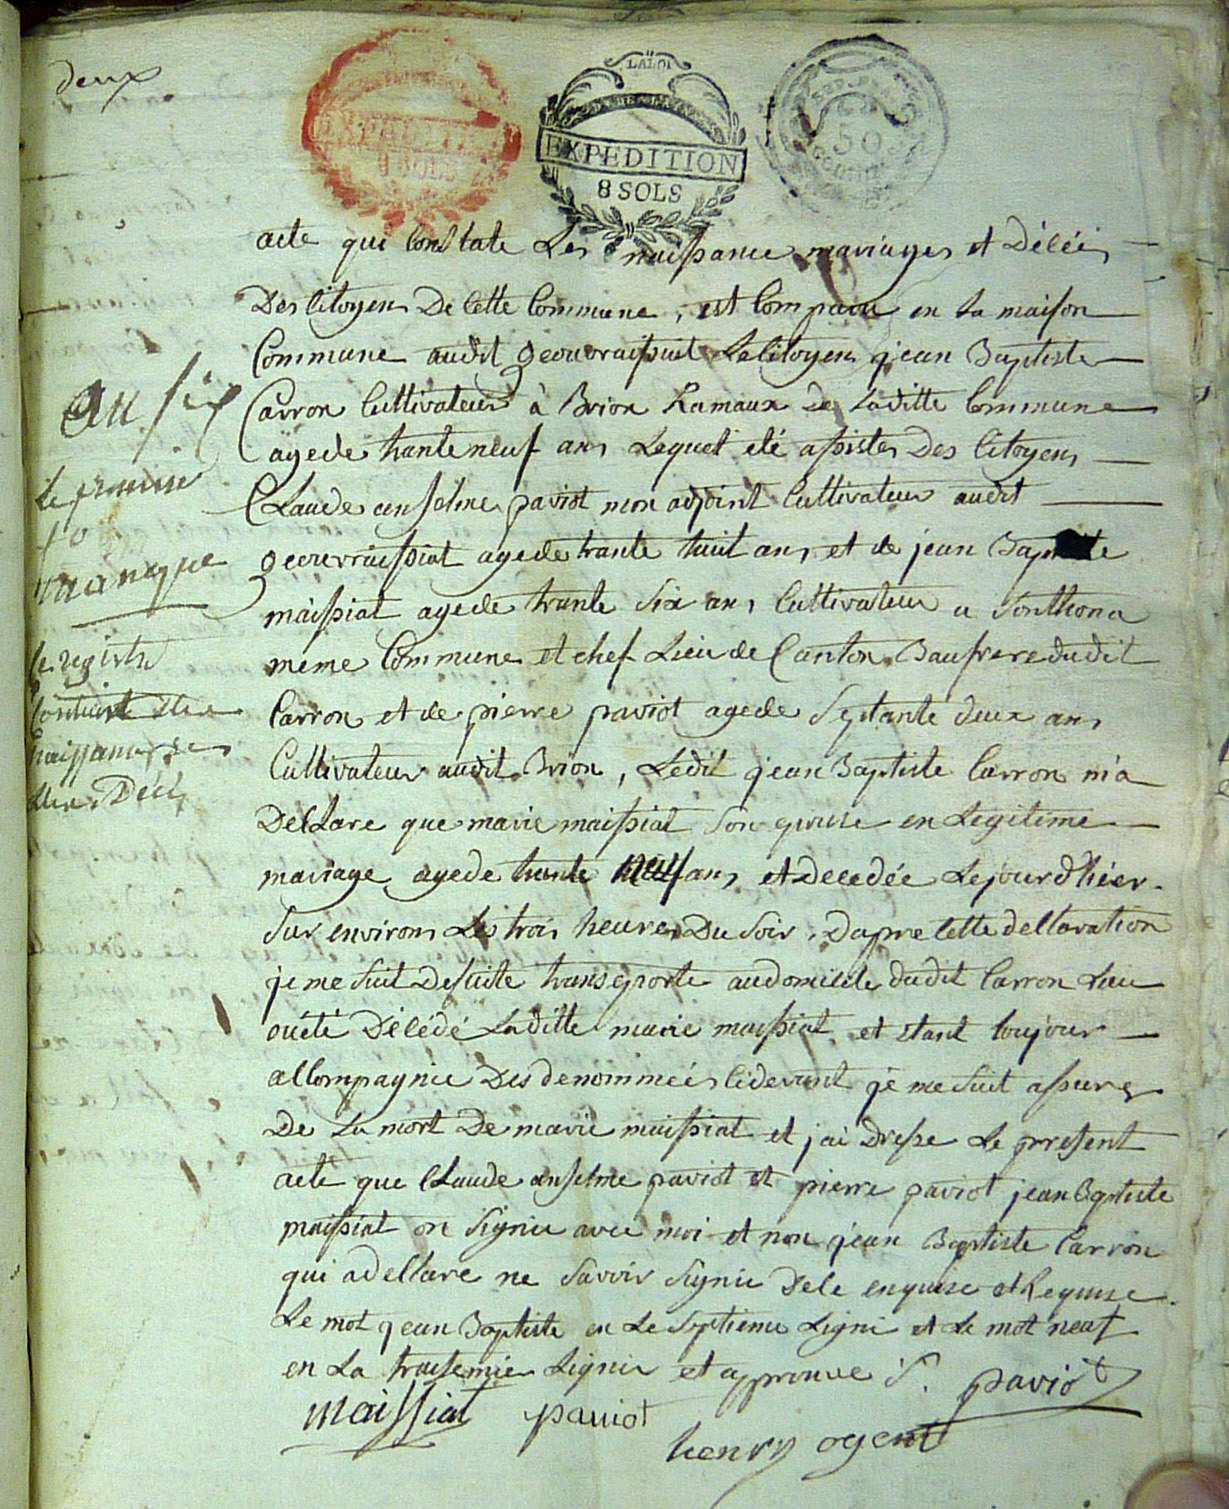 deux
LALOI
EXPEDITION
8 SOLS
EXPEDITION
8 SOLS
50
acte qui Constate Les naissance mariages et Décéés
Des Citoyens De Cette Commune, est Comparu en La maison
Commune audit geovraissiat Le Citoyen jean Baptiste
Carron Cultivateur à Brion Hamaux de Laditte Commune
agede trante neuf ans Lequel eté assistes Des Citoyens
CLaude anselme paviot mon adjoint Cultivateur audit
geovraissiat agede trante huit ans et de jean Baptiste
maissiat agede trante Six ans Cultivateur a Sonthona
meme Commune et chef Lieu de Canton Baufrere dudit
Carron et de pierre paviot agede Septante deux ans
Cultivateur audit Brion, Ledit jean Baptiste Carron m'a
DecLare que marie maissiat Son epouse en Legitime
mariage agede trante neuf ans et decedée Lejour d'hier
Sur environs Les trois heures Du Soir, Dapre Cette declaration
je me Suit De Suite transporte au domicile dudit Carron Lieu
ouété Décédé Laditte marie maissiat et etant toujour
accompagnie Des denommeés cidevant je me Suit assure
De La mort De marie maissiat et jai Dresse Le present
acte que CLaude anselme paviot et pierre paviot jean Baptiste
maissiat on Signie avec moi et non jean Baptiste Carron
qui a declare ne Savoir Signie De Ce enquise et Requise
Le mot jean Baptiste en Le Septieme Ligni et Le mot neuf
en La traisemie Lignie et approuve S. paviot
Maissiat paviot
henry ogent
an Six
Le premier
f o
manque
Le registre
Contient des
naissances
des Décés